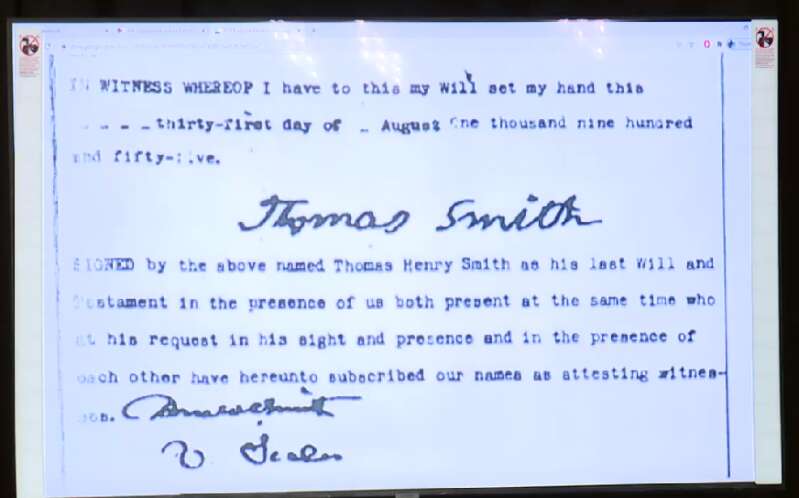 IN WITNESS WHEREOF I have to this my Will set my hand this
thirty-first day of August One thousand nine hundred
and fifty-five.
Thomas Smith
SIGNED by the above named Thomas Henry Smith as his last Will and
Testament in the presence of us both present at the same time who
at his request in his sight and presence and in the presence of
each other have hereunto subscribed our names as attesting witnes-
ses.